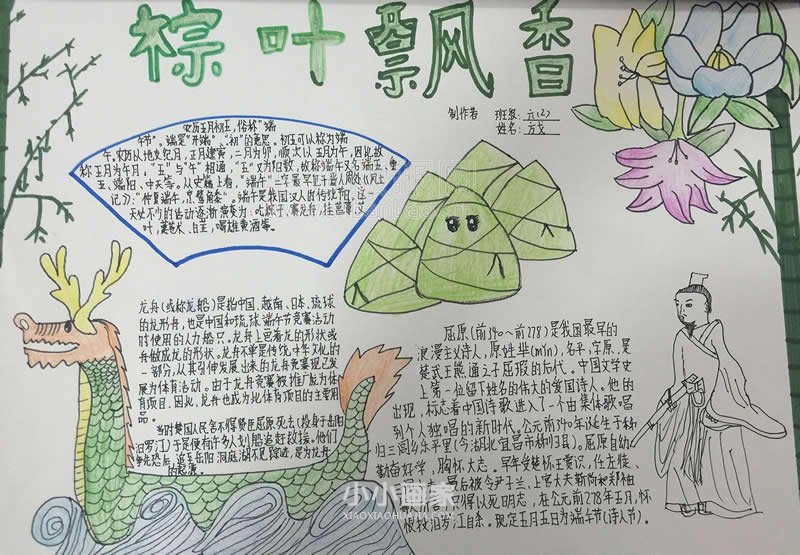 棕叶飘香
制作者 班级:六(2)
姓名:方戈
农历五月初五,俗称"端
午节"。端是"开端"、"初"的意思。初五可以称为端
午。农历以地支纪月,正月建寅,二月为卯,顺次以五月为午,因此故
称五月为午月,"五"与"午"相通,"五"又为阳数,故称端午又名端五、重
五、端阳、中天等。从史籍上看,"端午"二字最早见于晋人周处《风土
记》:"仲夏端午,烹鹜角黍"。端午是我国汉人的传统节日。这一
天处不少的活动逐渐演变为:吃粽子,赛龙舟,挂菖蒲、艾
叶,薰苍术、白芷,喝雄黄酒等。
龙舟(或称龙船)是指中国、越南、日本、琉球
的龙形舟,也是中国和琉球端午节竞赛活动
时使用的人力船只。龙舟上画着龙的形状或
舟做成龙的形状。龙舟不单是传统中华文化的
一部分,从其引伸发展出来的龙舟竞赛现已发
展为体育活动。由于龙舟竞赛被推广成为体
育项目,因此,龙舟也成为此体育项目的主要用
品。
当时楚国人民舍不得贤臣屈原死去(投身于岳阳
汨罗江)于是便有许多人划船追赶救援。他们
争先恐后,追至岳阳洞庭湖不见踪迹,是为龙舟
的起源。
屈原(前340~前278)是我国最早的
浪漫主义诗人,原姓芈(mǐn),名平,字原,是
楚武王熊通之子屈瑕的后代。中国文学史
上第一位留下姓名的伟大的爱国诗人。他的
出现,标志着中国诗歌进入了一个由集体歌唱
到个人独唱的新时代。公元前340年诞生于秭
归三闾乡乐平里(今湖北宜昌市秭归县)。屈原自幼
勤奋好学,胸怀大志。早年受楚怀王赏识,任左徒、
最后被令尹子兰、上官大夫靳尚
得以死明志,在公元前278年五月,怀
恨投汨罗江自杀。现定五月五日为端午节(诗人节)。
小小画家
XIAOXIAOHUAJIA.COM